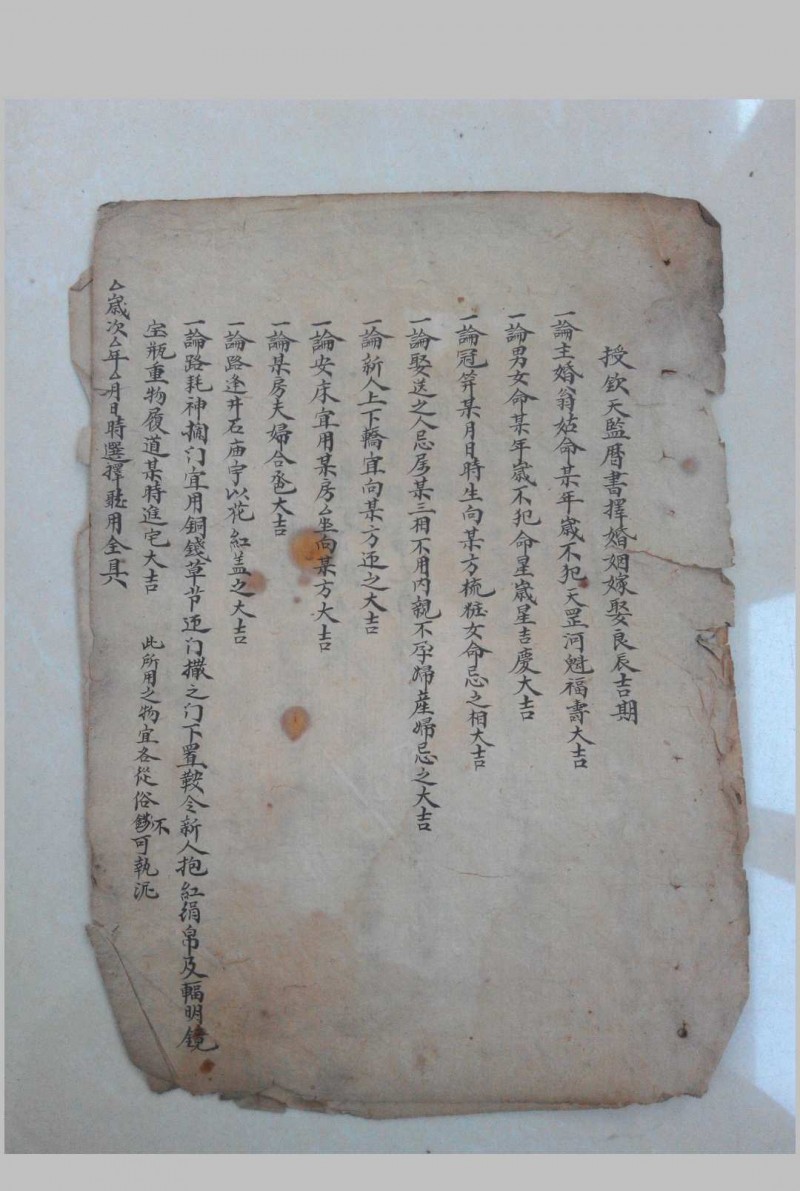 授欽天監曆書擇婚姻嫁娶良辰吉期
一論主婚翁姑命某年歲不犯天罡河魁福壽大吉
一論男女命某年歲不犯命星歲星吉慶大吉
一論冠筓某月日時生向某方梳粧女命忌之相大吉
一論娶送之人忌屬某三相不用内親不孕婦産婦忌之大吉
一論新人上下轎宜向某方迎之大吉
一論安床宜用某房厶坐向某方大吉
一論某房夫婦合卺大吉
一論路逢井石庙宇以花紅盖之大吉
一論路耗神攔门宜用銅錢草节迎门撒之门下置鞍令新人抱紅绢帛及輻明鏡
宝瓶重物履道某時進宅大吉 此所用之物宜各從俗不可執泥
厶歲次厶年厶月日時選擇聴用全具